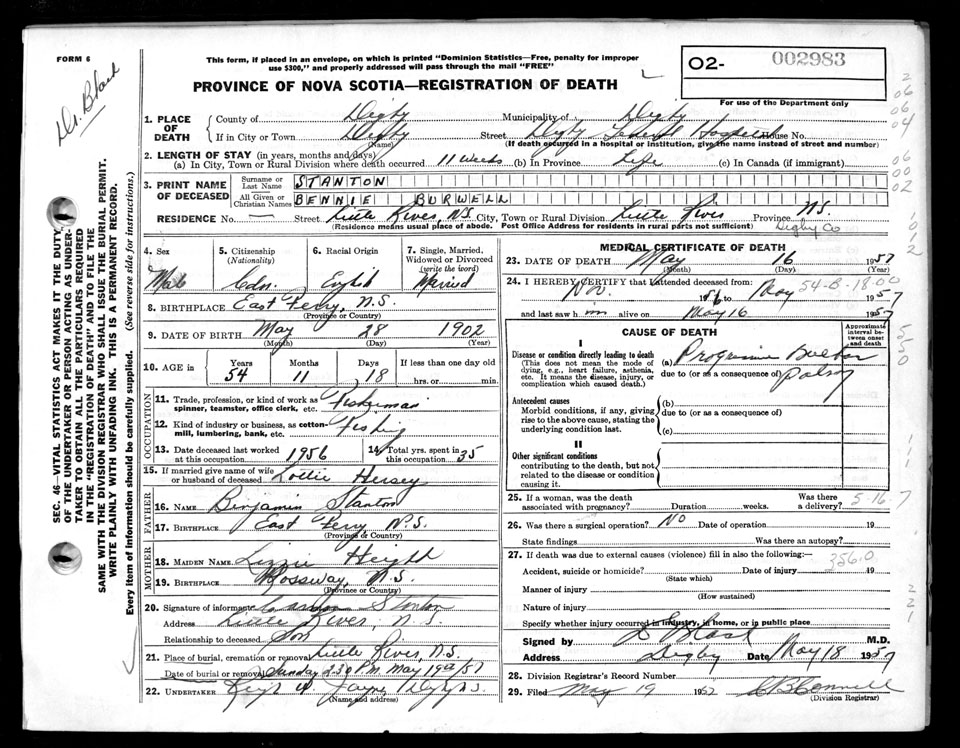 FORM 6
Dr. Black
This form, if placed in an envelope, on which is printed "Dominion Statistics—Free, penalty for improper
use $300," and properly addressed will pass through the mail "FREE"
PROVINCE OF NOVA SCOTIA—REGISTRATION OF DEATH
O2- 002983
For use of the Department only
SEC. 46—VITAL STATISTICS ACT MAKES IT THE DUTY
OF THE UNDERTAKER OR PERSON ACTING AS UNDER-
TAKER TO OBTAIN ALL THE PARTICULARS REQUIRED
IN THE "REGISTRATION OF DEATH" AND TO FILE THE
SAME WITH THE DIVISION REGISTRAR WHO SHALL ISSUE THE BURIAL PERMIT.
WRITE PLAINLY WITH UNFADING INK. THIS IS A PERMANENT RECORD.
Every item of information should be carefully supplied. (See reverse side for instructions.)
1. PLACE OF DEATH
County of Digby Municipality of Digby
If in City or Town Digby Street Digby General Hospital House No.
(Name) (If death occurred in a hospital or institution, give the name instead of street and number)
2. LENGTH OF STAY (in years, months and days)
(a) In City, Town or Rural Division where death occurred 11 weeks (b) In Province Life (c) In Canada (if immigrant)
3. PRINT NAME OF DECEASED
Surname or Last Name STANTON
All Given or Christian Names BENNIE BURWELL
RESIDENCE No. — Street Little River, N.S. City, Town or Rural Division Little River Province N.S.
(Residence means usual place of abode. Post Office Address for residents in rural parts not sufficient) Digby Co
4. Sex
Male
5. Citizenship (Nationality)
Cdn.
6. Racial Origin
English
7. Single, Married, Widowed or Divorced (write the word)
Married
8. BIRTHPLACE East Ferry, N.S.
(Province or Country)
9. DATE OF BIRTH May 28 1902
(Month) (Day) (Year)
10. AGE in Years 54 Months 11 Days 18 If less than one day old
hrs. or min.
OCCUPATION
11. Trade, profession, or kind of work as spinner, teamster, office clerk, etc. Fisherman
12. Kind of industry or business, as cotton-mill, lumbering, bank, etc. Fishing
13. Date deceased last worked at this occupation 1956 14. Total yrs. spent in this occupation 35
15. If married give name of wife or husband of deceased Lottie Hersey
FATHER
16. NAME Benjamin Stanton
17. BIRTHPLACE East Ferry N.S.
(Province or Country)
MOTHER
18. MAIDEN NAME Lizzie Height
19. BIRTHPLACE Rossway, N.S.
(Province or Country)
20. Signature of informant Stanton
Address Little River, N.S.
Relationship to deceased Son
21. Place of burial, cremation or removal Little River, N.S.
Date of burial or removal Sunday 2:30 P.M. May 19th/57
22. UNDERTAKER
(Name and address)
MEDICAL CERTIFICATE OF DEATH
23. DATE OF DEATH May 16 1957
(Month) (Day) (Year)
24. I HEREBY CERTIFY that I attended deceased from 54-B-18-00
Nov. 1956 to May 1957
and last saw him alive on May 16 1957
CAUSE OF DEATH
Approximate interval between onset and death
I
Disease or condition directly leading to death
(This does not mean the mode of dying, e.g., heart failure, asthenia, etc. It means the disease, injury, or complication which caused death.)
(a) Progressive Bulbar Palsy
due to (or as a consequence of)
Antecedent causes
Morbid conditions, if any, giving rise to the above cause, stating the underlying condition last.
(b)
due to (or as a consequence of)
(c)
II
Other significant conditions
contributing to the death, but not related to the disease or condition causing it.
25. If a woman, was the death associated with pregnancy? Duration weeks. Was there a delivery? 5-16 7
26. Was there a surgical operation? No Date of operation 19
State findings Was there an autopsy?
27. If death was due to external causes (violence) fill in also the following:—
356.0
Accident, suicide or homicide? Date of injury 19
(State which)
Manner of injury
(How sustained)
Nature of injury
Specify whether injury occurred in industry, in home, or in public place
Signed by Black M.D.
Address Digby Date May 18 1957
28. Division Registrar's Record Number
29. Filed May 19 1957
(Division Registrar)